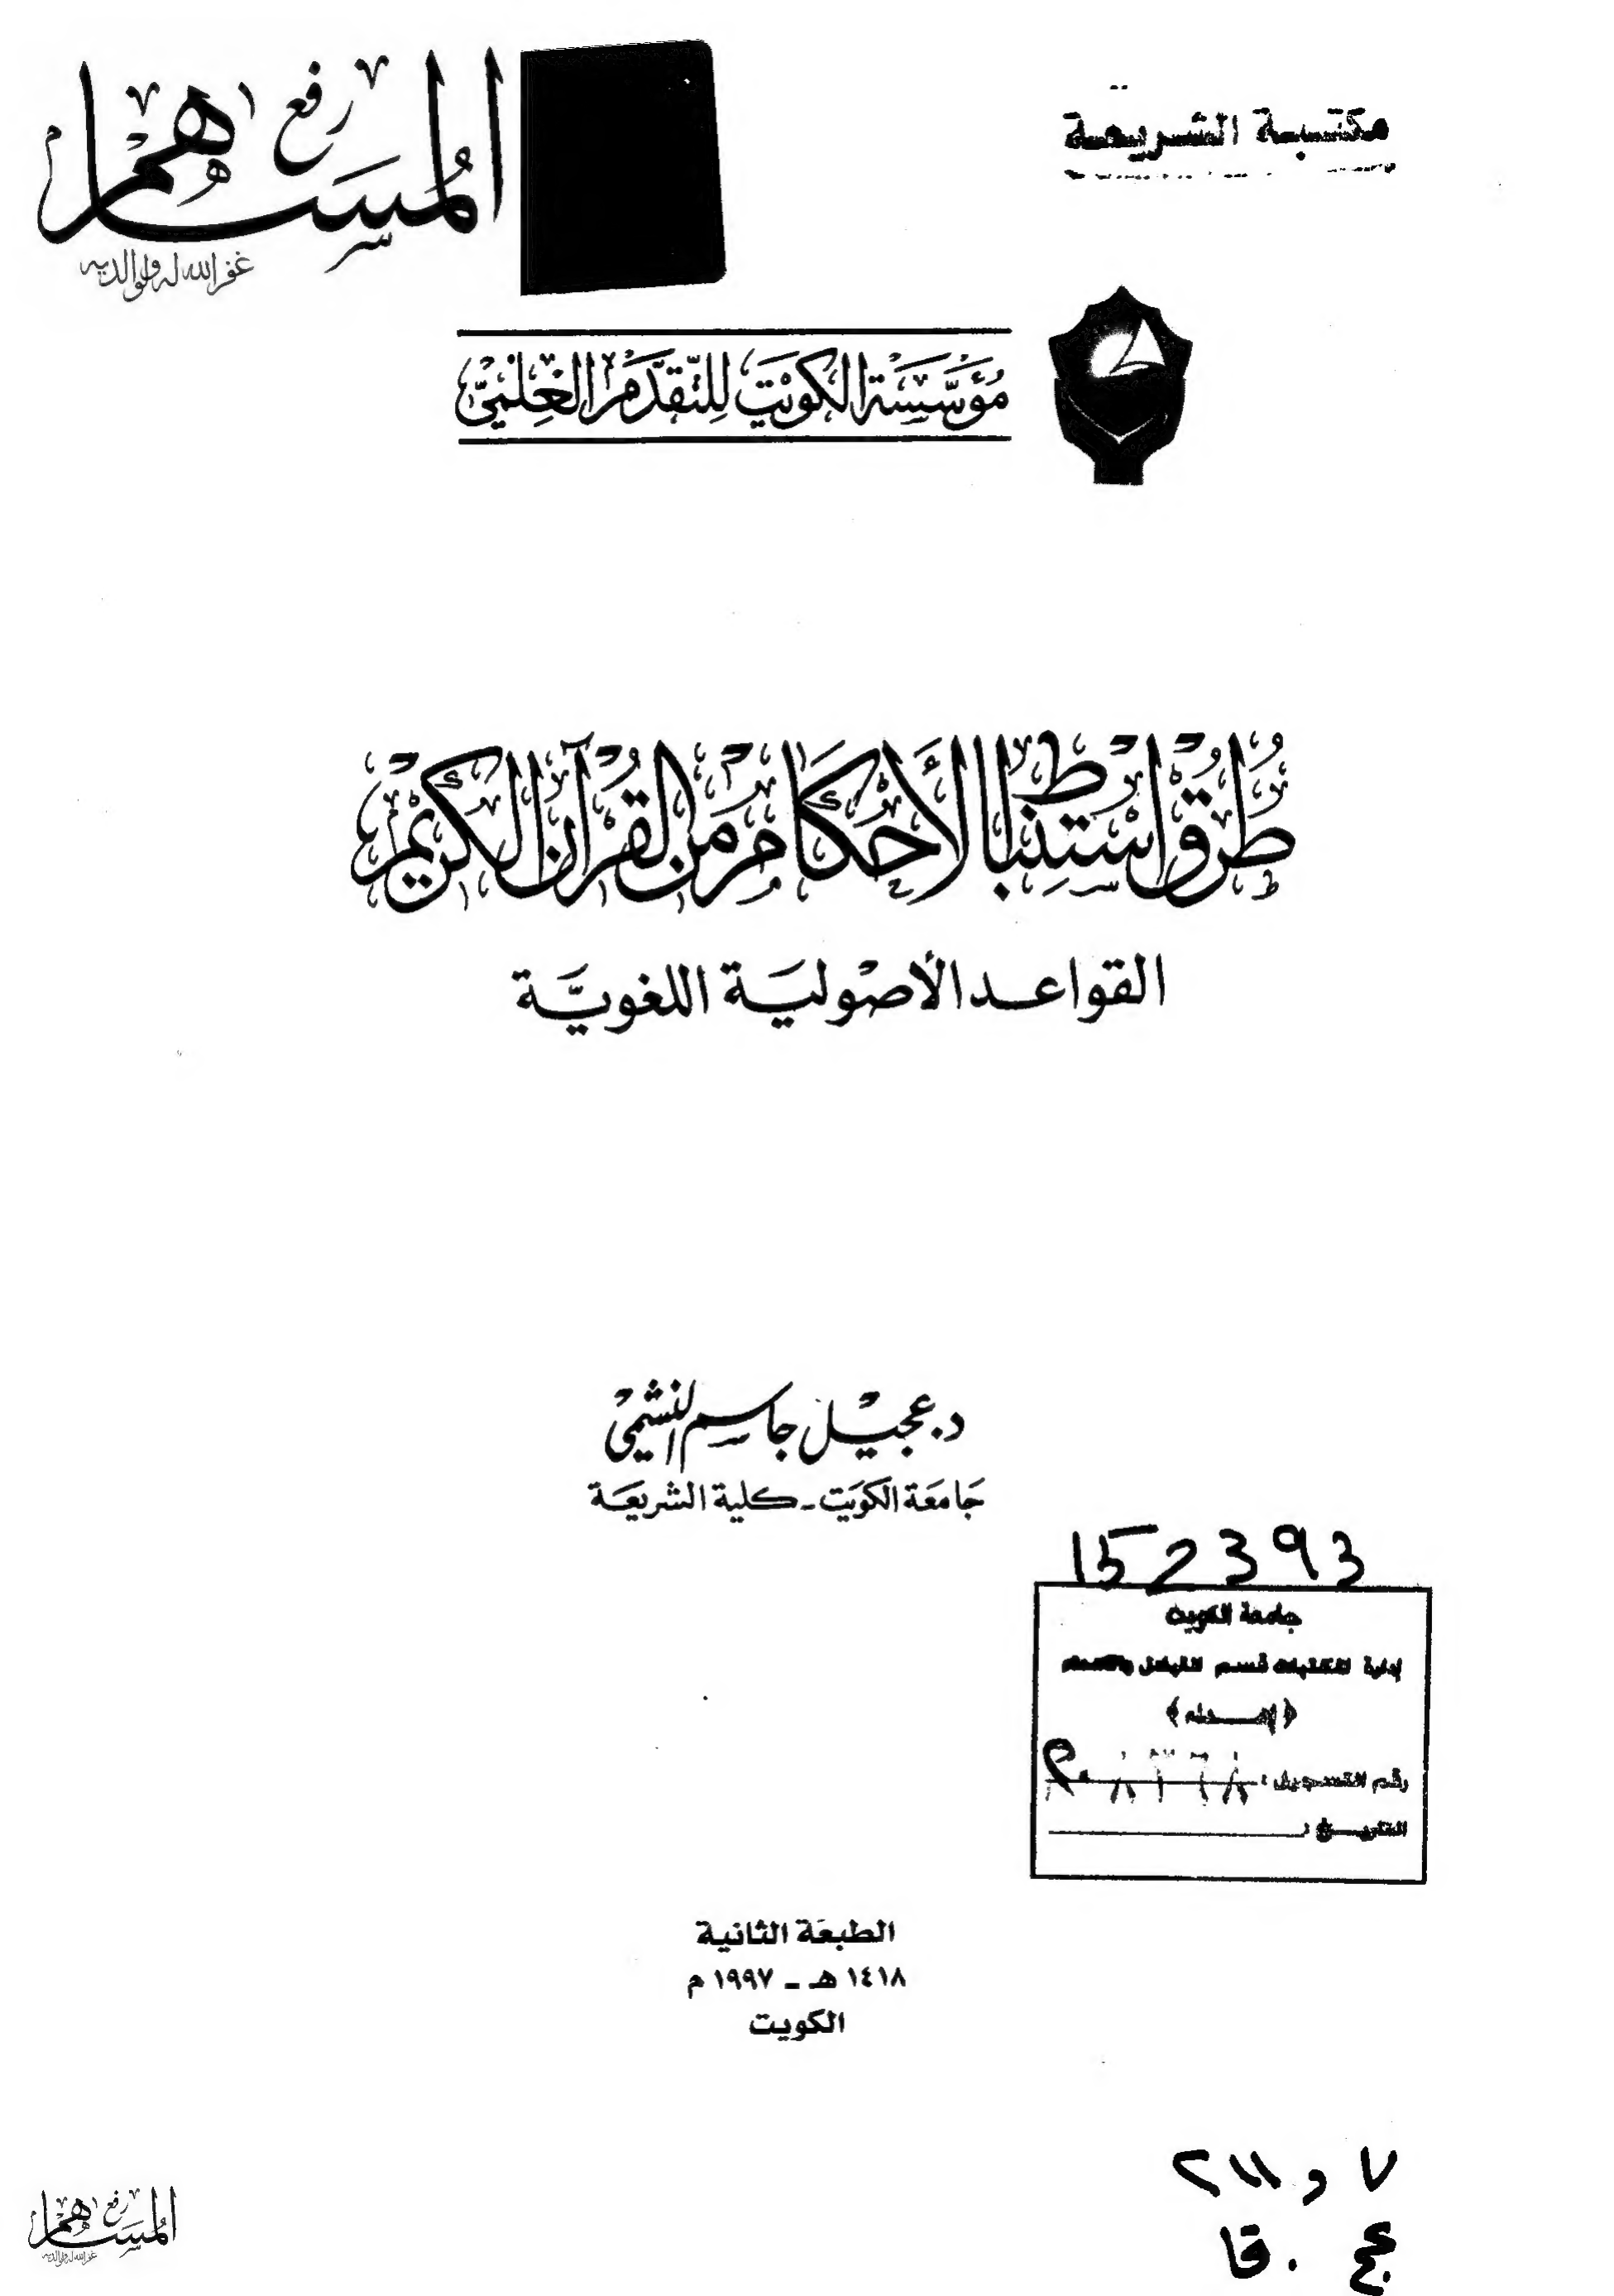 مكتبة الشريعة
رفع
المساهم
غفر الله له ولوالديه
مُؤسَّسَة الكويْت لِلتّقدَّم العِلميّ
طُرُق استنباط الأحكام من القُرآن الكريم
القواعد الأصولية اللغويَّة
د. عجيل جاسم النشمي
جَامعَة الكويَت - كلية الشريعَة
152393
جامعة الكويت
إدارة المكتبات قسم التبادل والاهداء
﴿إهــداء﴾
رقم التسجيل :
التاريخ :
الطبعَة الثانية
١٤١٨ هـ - ١٩٩٧ م
الكويت
٧ و ٢١١
عج . قا
رفع
المساهم
غفر الله له ولوالديه